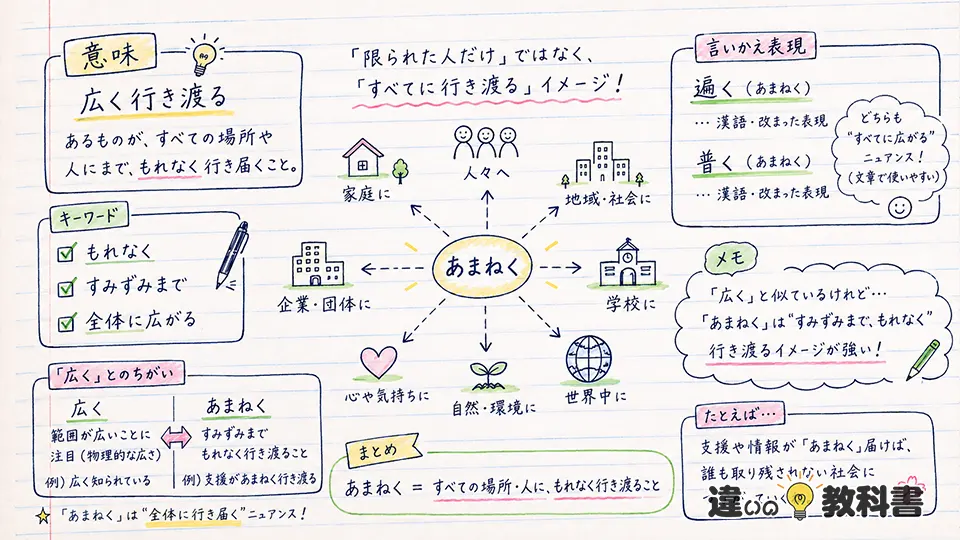 意味
広く行き渡る
あるものが、すべての場所や
人にまで、もれなく行き届くこと。
「限られた人だけ」ではなく、
「すべてに行き渡る」イメージ!
言いかえ表現
遍く（あまねく）
… 漢語・改まった表現
普く（あまねく）
… 漢語・改まった表現
どちらも
“すべてに広がる”
ニュアンス!
（文章で使いやすい）
キーワード
もれなく
すみずみまで
全体に広がる
家庭に
人々へ
地域・社会に
企業・団体に
あまねく
学校に
心や気持ちに
自然・環境に
世界中に
メモ
「広く」と似ているけれど…
「あまねく」は“すみずみまで、もれなく”
行き渡るイメージが強い!
「広く」とのちがい
広く
範囲が広いことに
注目（物理的な広さ）
例）広く知られている
あまねく
すみずみまで
もれなく行き渡ること
例）支援があまねく行き渡る
「あまねく」は“全体に行き届く”ニュアンス!
まとめ
あまねく = すべての場所・人に、もれなく行き渡ること
たとえば…
支援や情報が「あまねく」届けば、
誰も取り残されない社会に
違いの教科書